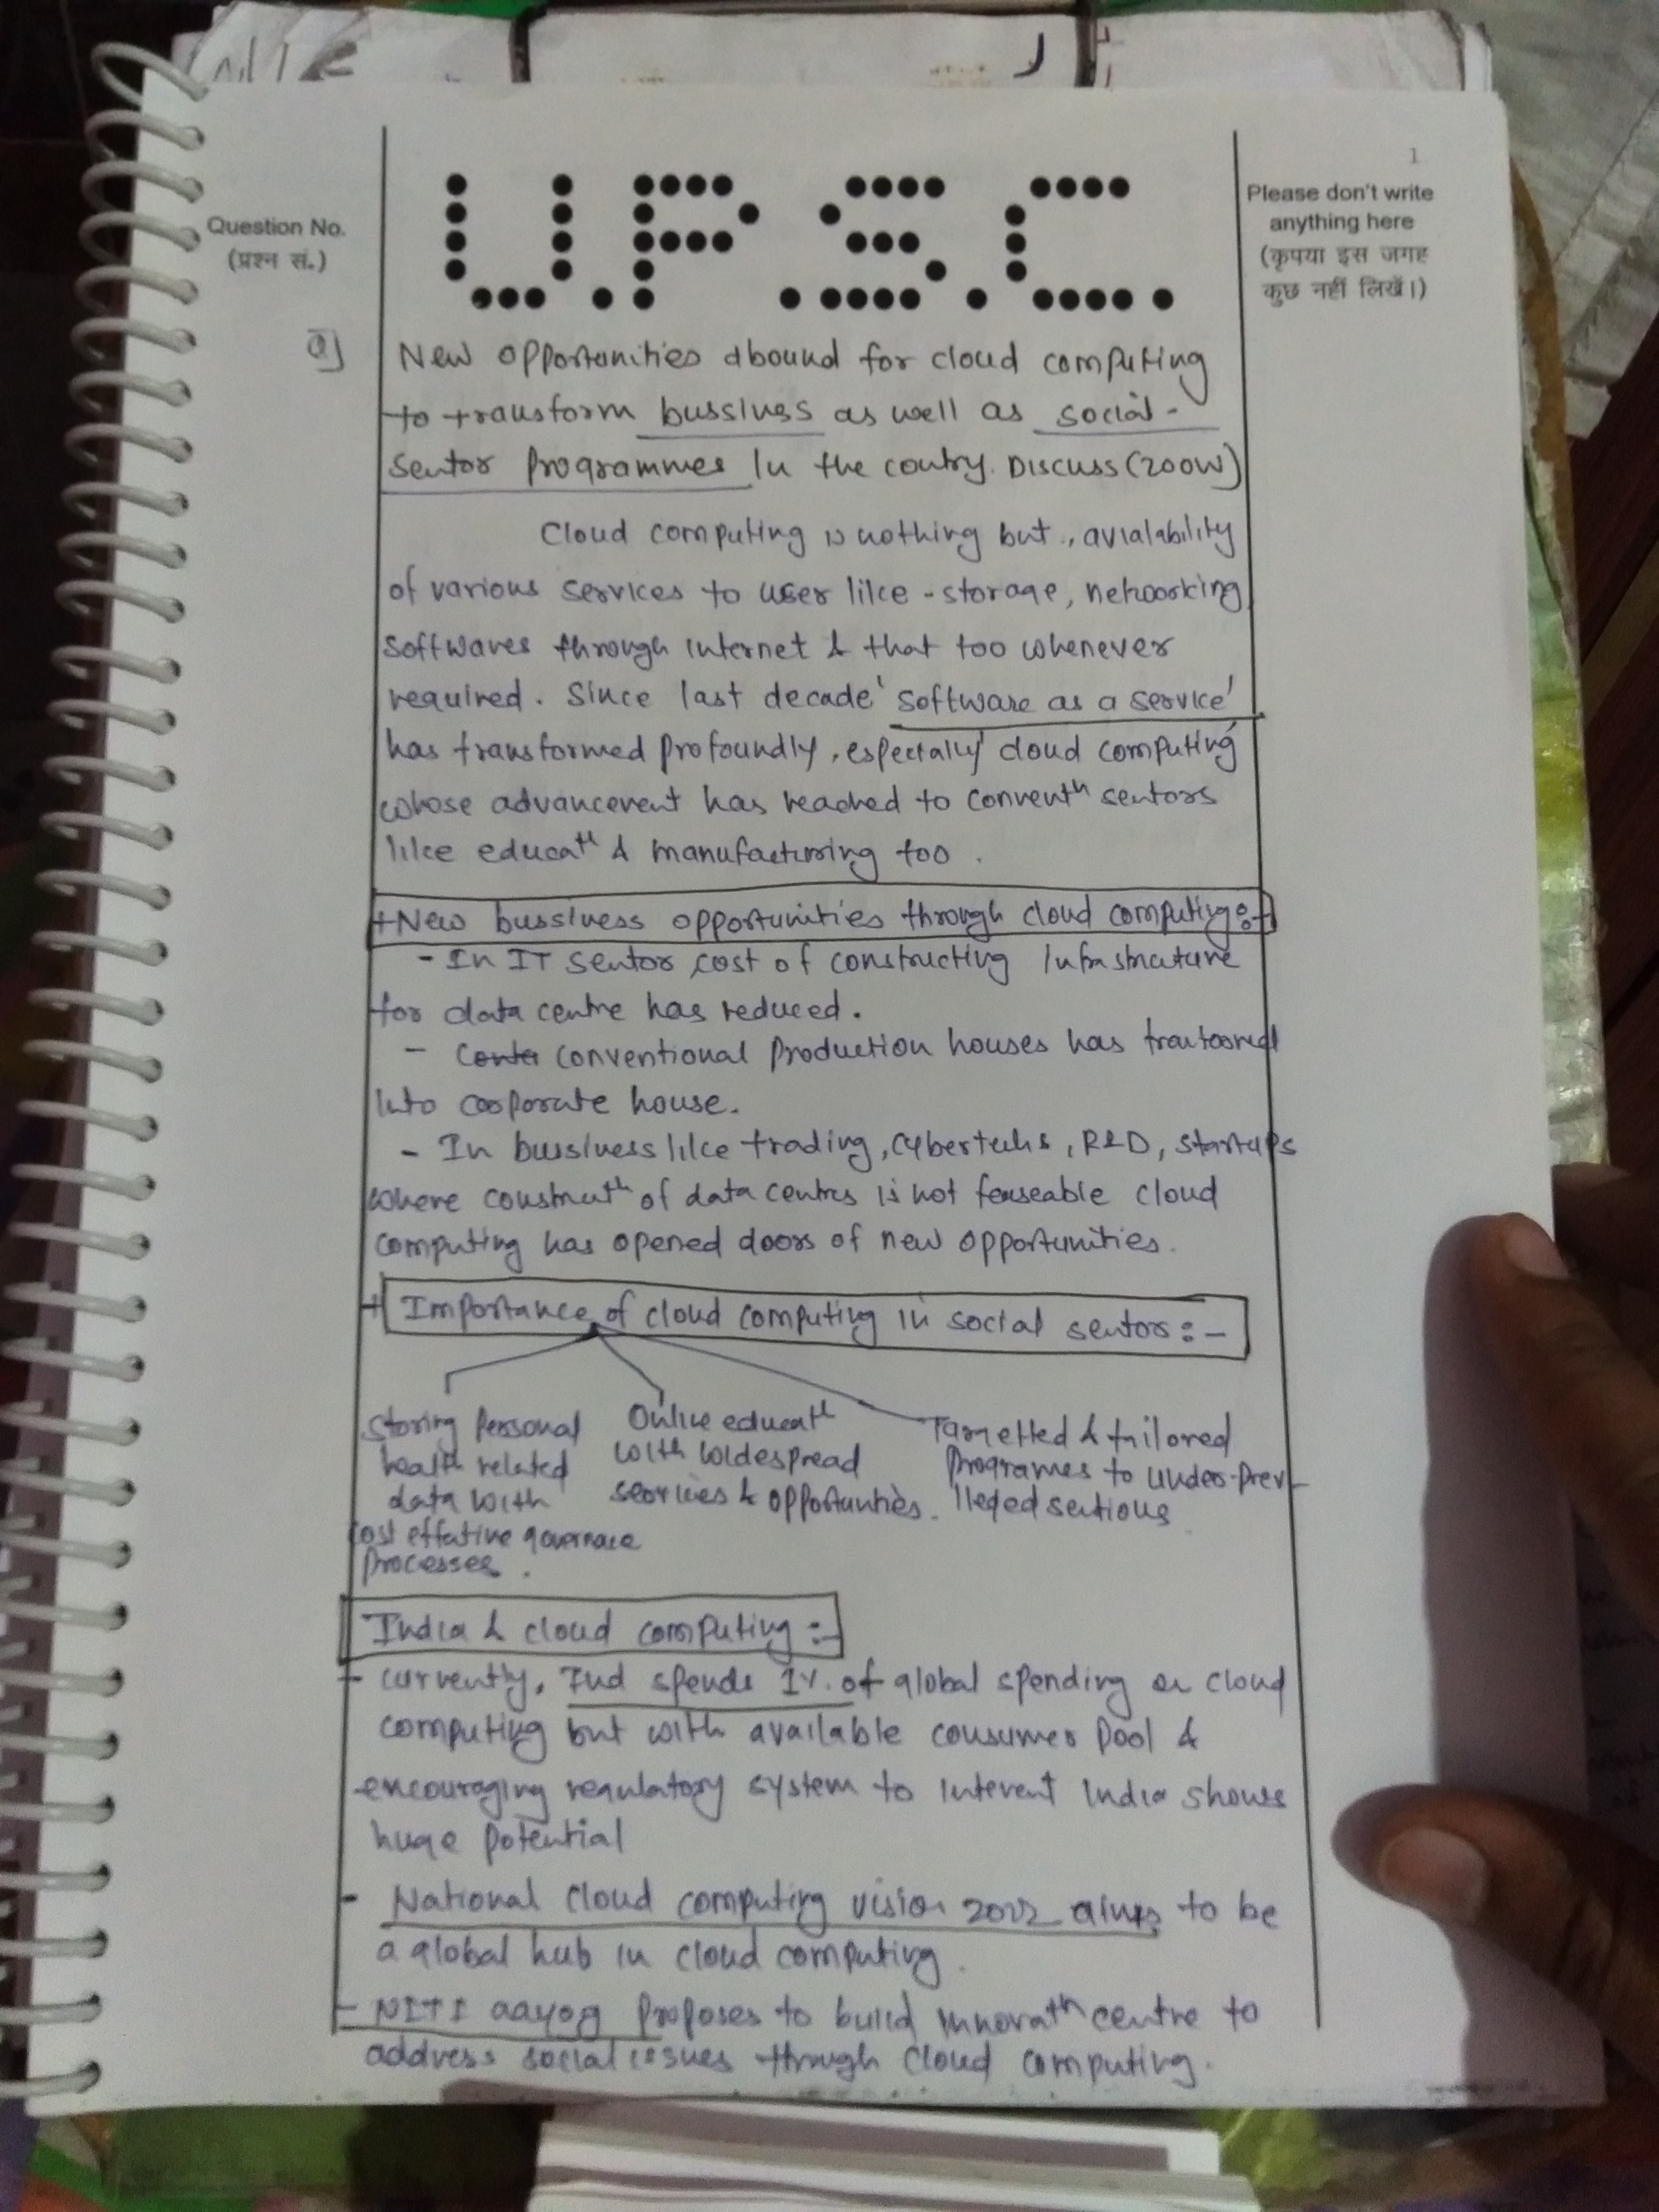 1
Question No.
(प्रश्न सं.)
U.P.S.C.
Please don't write
anything here
(कृपया इस जगह
कुछ नहीं लिखें।)
Q]
New opportunities abound for cloud computing
to transform bussiness as well as social-
sector programmes In the coutry. Discuss (200W)
Cloud computing is nothing but, avialability
of various services to user like - storage, networking
softwares through internet & that too whenever
required. Since last decade 'software as a service'
has transformed profoundly, especially cloud computing
whose advancement has reached to convent^n sectors
like educat^n & manufacturing too.
+New bussiness opportunities through cloud computing:-
- In IT sector cost of constructing Infrastructure
for data centre has reduced.
- conventional production houses has
Into corporate house.
- In bussiness like trading, cybertechs, R&D, startups
where construct^n of data centres is not feaseable cloud
computing has opened doors of new opportunities.
+ Importance of cloud computing in social sector:-
Storing personal
health related
data with
cost effective governace
processes.
Online educat^n
with widespread
services & opportunties.
Targetted & tailored
programes to under-prev-
lleged sections
India & cloud computing :-
- currently, Ind spends 1%. of global spending on cloud
computing but with available consumer pool &
encouraging regulatory system to intervent India shows
huge potential
- National cloud computing vision 2022 aims to be
a global hub in cloud computing.
- NITI aayog proposes to build Innovat^n centre to
address social issues through cloud computing.